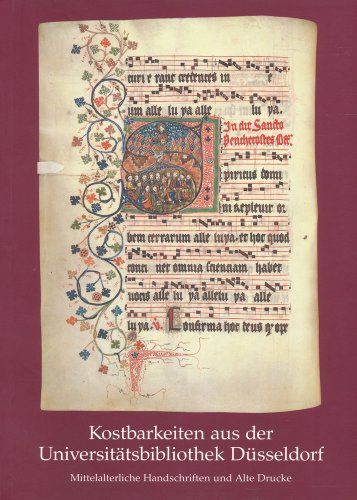 curi e rant credentes in e
um alle lu ya alle lu ya.
In die Sancto
Penthecostes Off.
piritus domi
ni repleuit or
bem terrarum alle luya. et hoc quod
conti net omnia scientiam haber
uocis alle lu ya alleluya alle
lu ya. V. Confirma hoc deus q̄ ope
Kostbarkeiten aus der
Universitätsbibliothek Düsseldorf
Mittelalterliche Handschriften und Alte Drucke